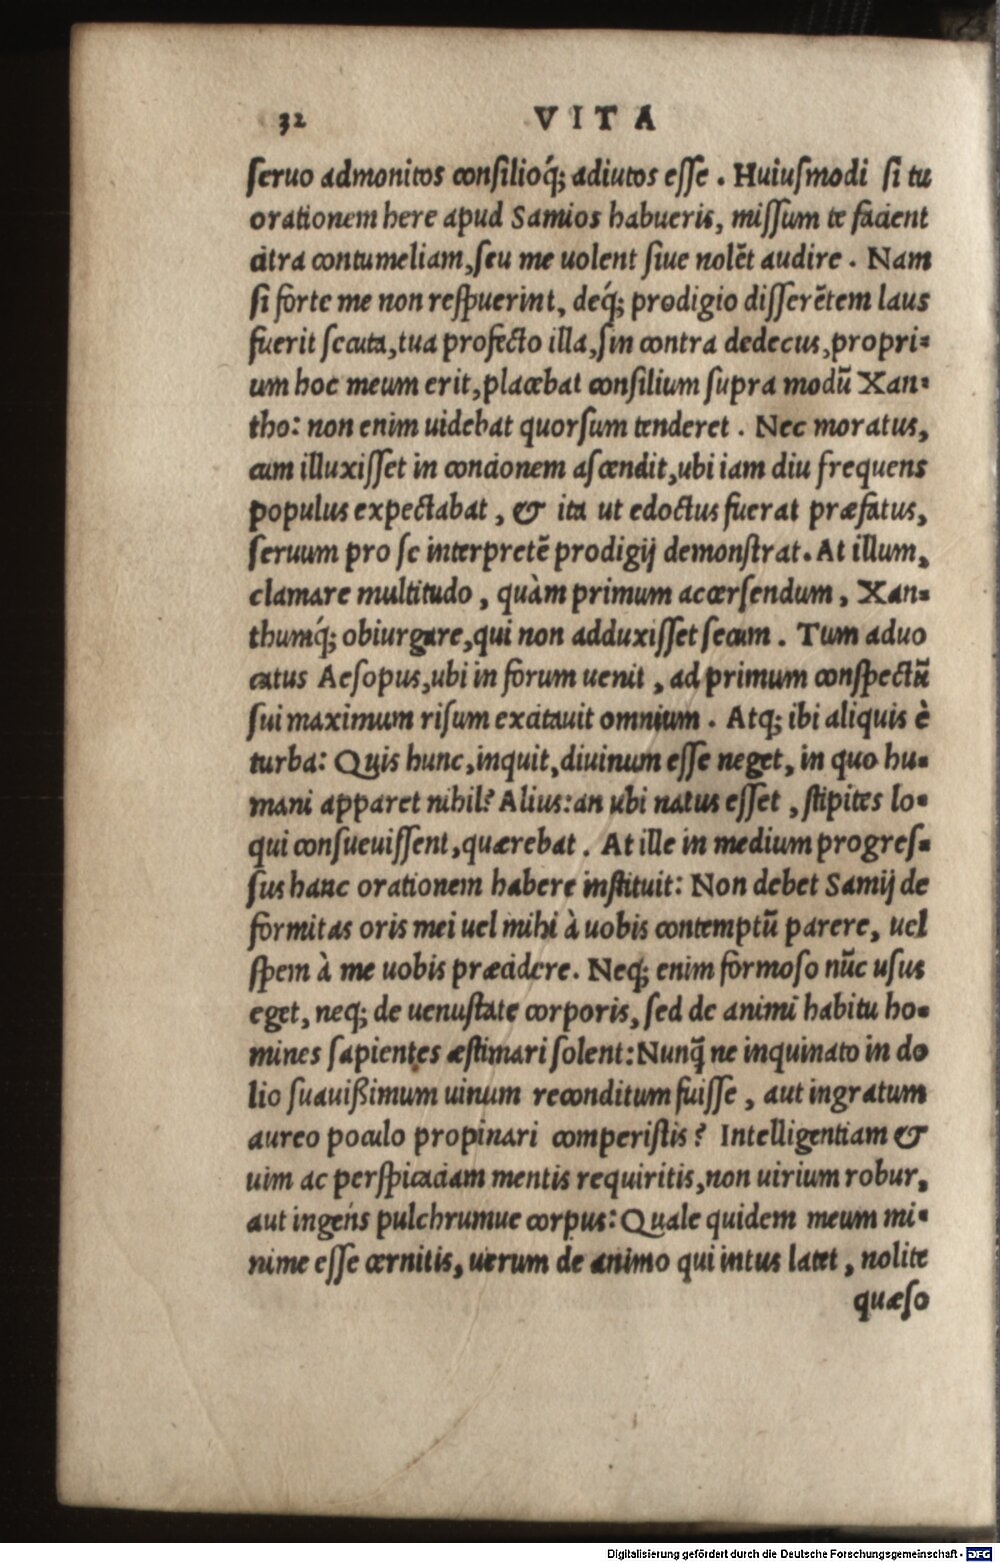 32 VITA
ſeruo admonitos conſilioq́; adiutos eſſe. Huiuſmodi ſi tu
orationem here apud Samios habueris, miſſum te facient
citra contumeliam, ſeu me uolent ſiue nolēt audire. Nam
ſi forte me non reſpuerint, deq́; prodigio diſſerētem laus
fuerit ſecuta, tua profecto illa, ſin contra dedecus, propri-
um hoc meum erit, placebat conſilium ſupra modū Xan-
tho: non enim uidebat quorſum tenderet. Nec moratus,
cum illuxiſſet in concionem aſcendit, ubi iam diu frequens
populus expectabat, & ita ut edoctus fuerat præfatus,
ſeruum pro ſe interpretē prodigij demonſtrat. At illum,
clamare multitudo, quàm primum accerſendum, Xan-
thumq́; obiurgare, qui non adduxiſſet ſecum. Tum aduo
catus Aeſopus, ubi in forum uenit, ad primum conſpectū
ſui maximum riſum excitauit omnium. Atq; ibi aliquis è
turba: Quis hunc, inquit, diuinum eſſe neget, in quo hu-
mani apparet nihil? Alius: an ubi natus eſſet, ſtipites lo-
qui conſueuiſſent, quærebat. At ille in medium progreſ-
ſus hanc orationem habere inſtituit: Non debet Samij de
formitas oris mei uel mihi à uobis contemptū parere, uel
ſpem à me uobis præcidere. Neq; enim formoſo nūc uſus
eget, neq; de uenuſtate corporis, ſed de animi habitu ho-
mines ſapientes æſtimari ſolent: Nunq̃ ne inquinato in do
lio ſuauißimum uinum reconditum fuiſſe, aut ingratum
aureo poculo propinari comperiſtis? Intelligentiam &
uim ac perſpicaciam mentis requiritis, non uirium robur,
aut ingens pulchrumue corpus: Quale quidem meum mi-
nime eſſe cernitis, uerum de animo qui intus latet, nolite
quæſo
Digitalisierung gefördert durch die Deutsche Forschungsgemeinschaft - DFG